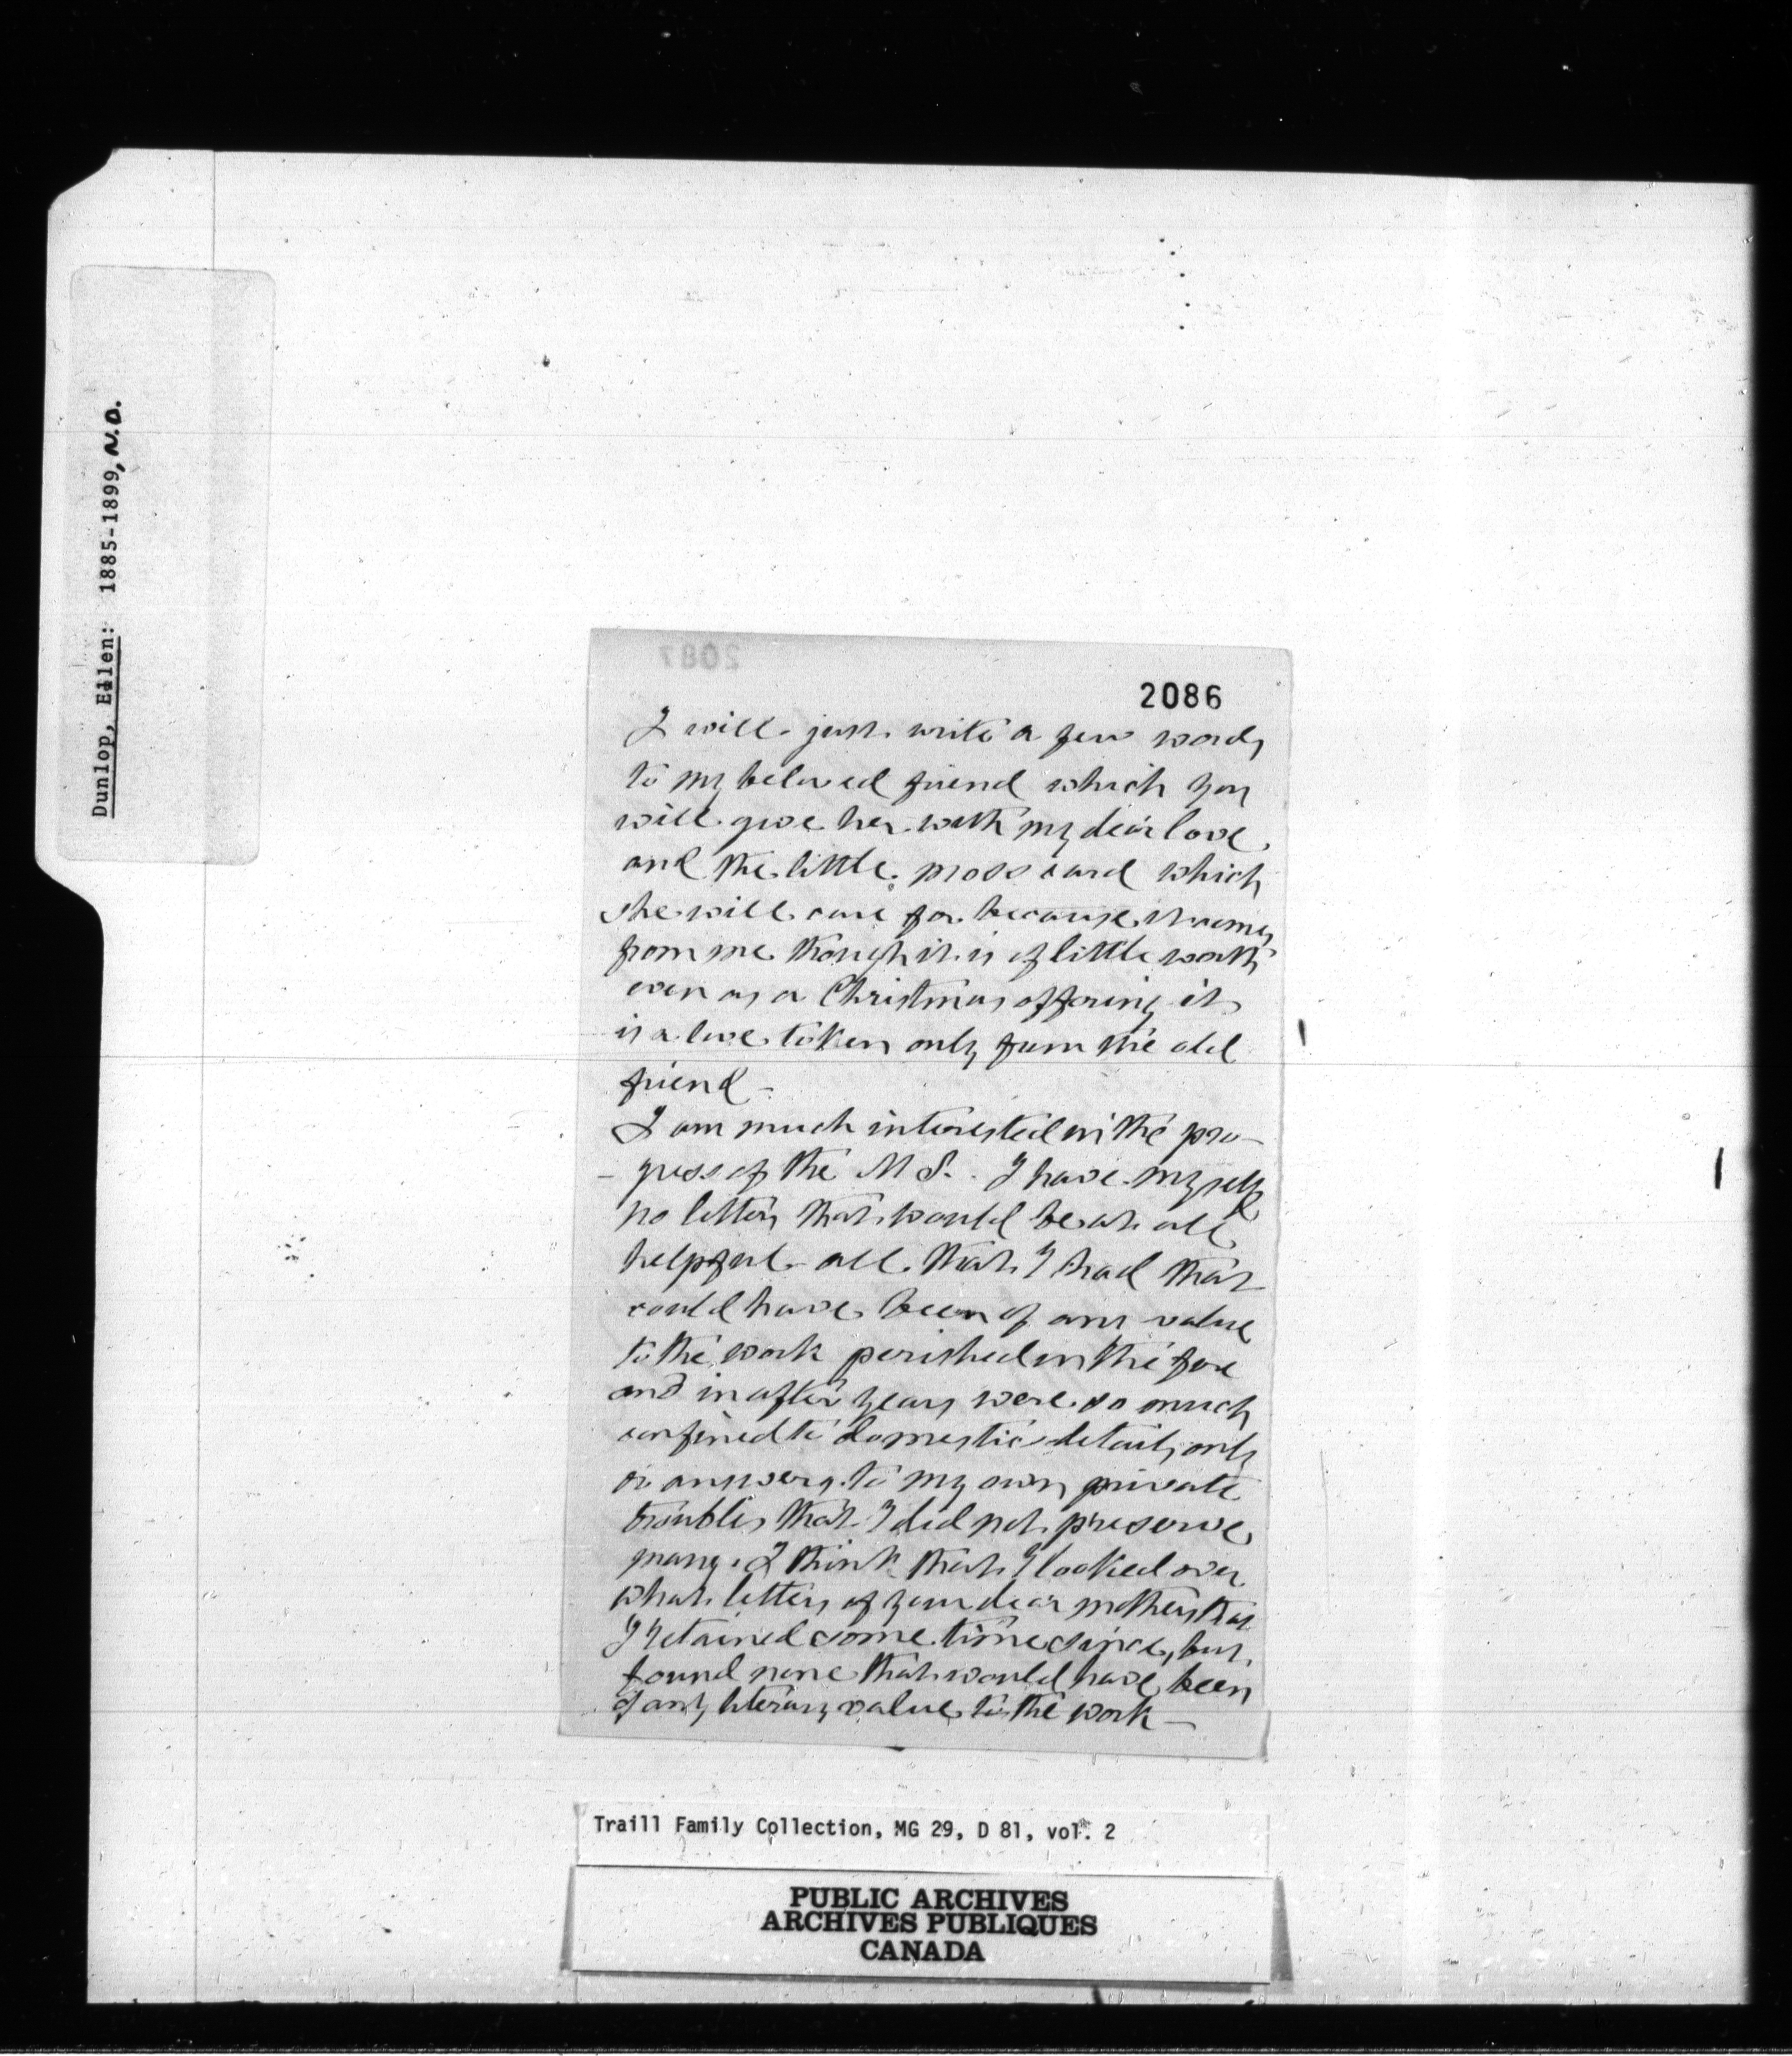 Dunlop, Ellen: 1885-1899, N.D.
2087
2086
I will just write a few words
to my beloved friend which you
will give her with my dear love
and the little moss card which
she will care for because it comes
from me though it is of little worth
even as a Christmas offering it
is a love token only from the old
friend -
I am much interested in the pro-
- gress of the M S. I have myself
no letters that would be at all
helpful - all that I had that
could have been of any value
to the work perished in the fire
and in after years were so much
confined to domestic details only
or answers to my own private
troubles that I did not preserve
many. I think that I looked over
what letters of your dear mothers that
I retained some time since, but
found none that would have been
of any literary value to the work -
Traill Family Collection, MG 29, D 81, vol. 2
PUBLIC ARCHIVES
ARCHIVES PUBLIQUES
CANADA